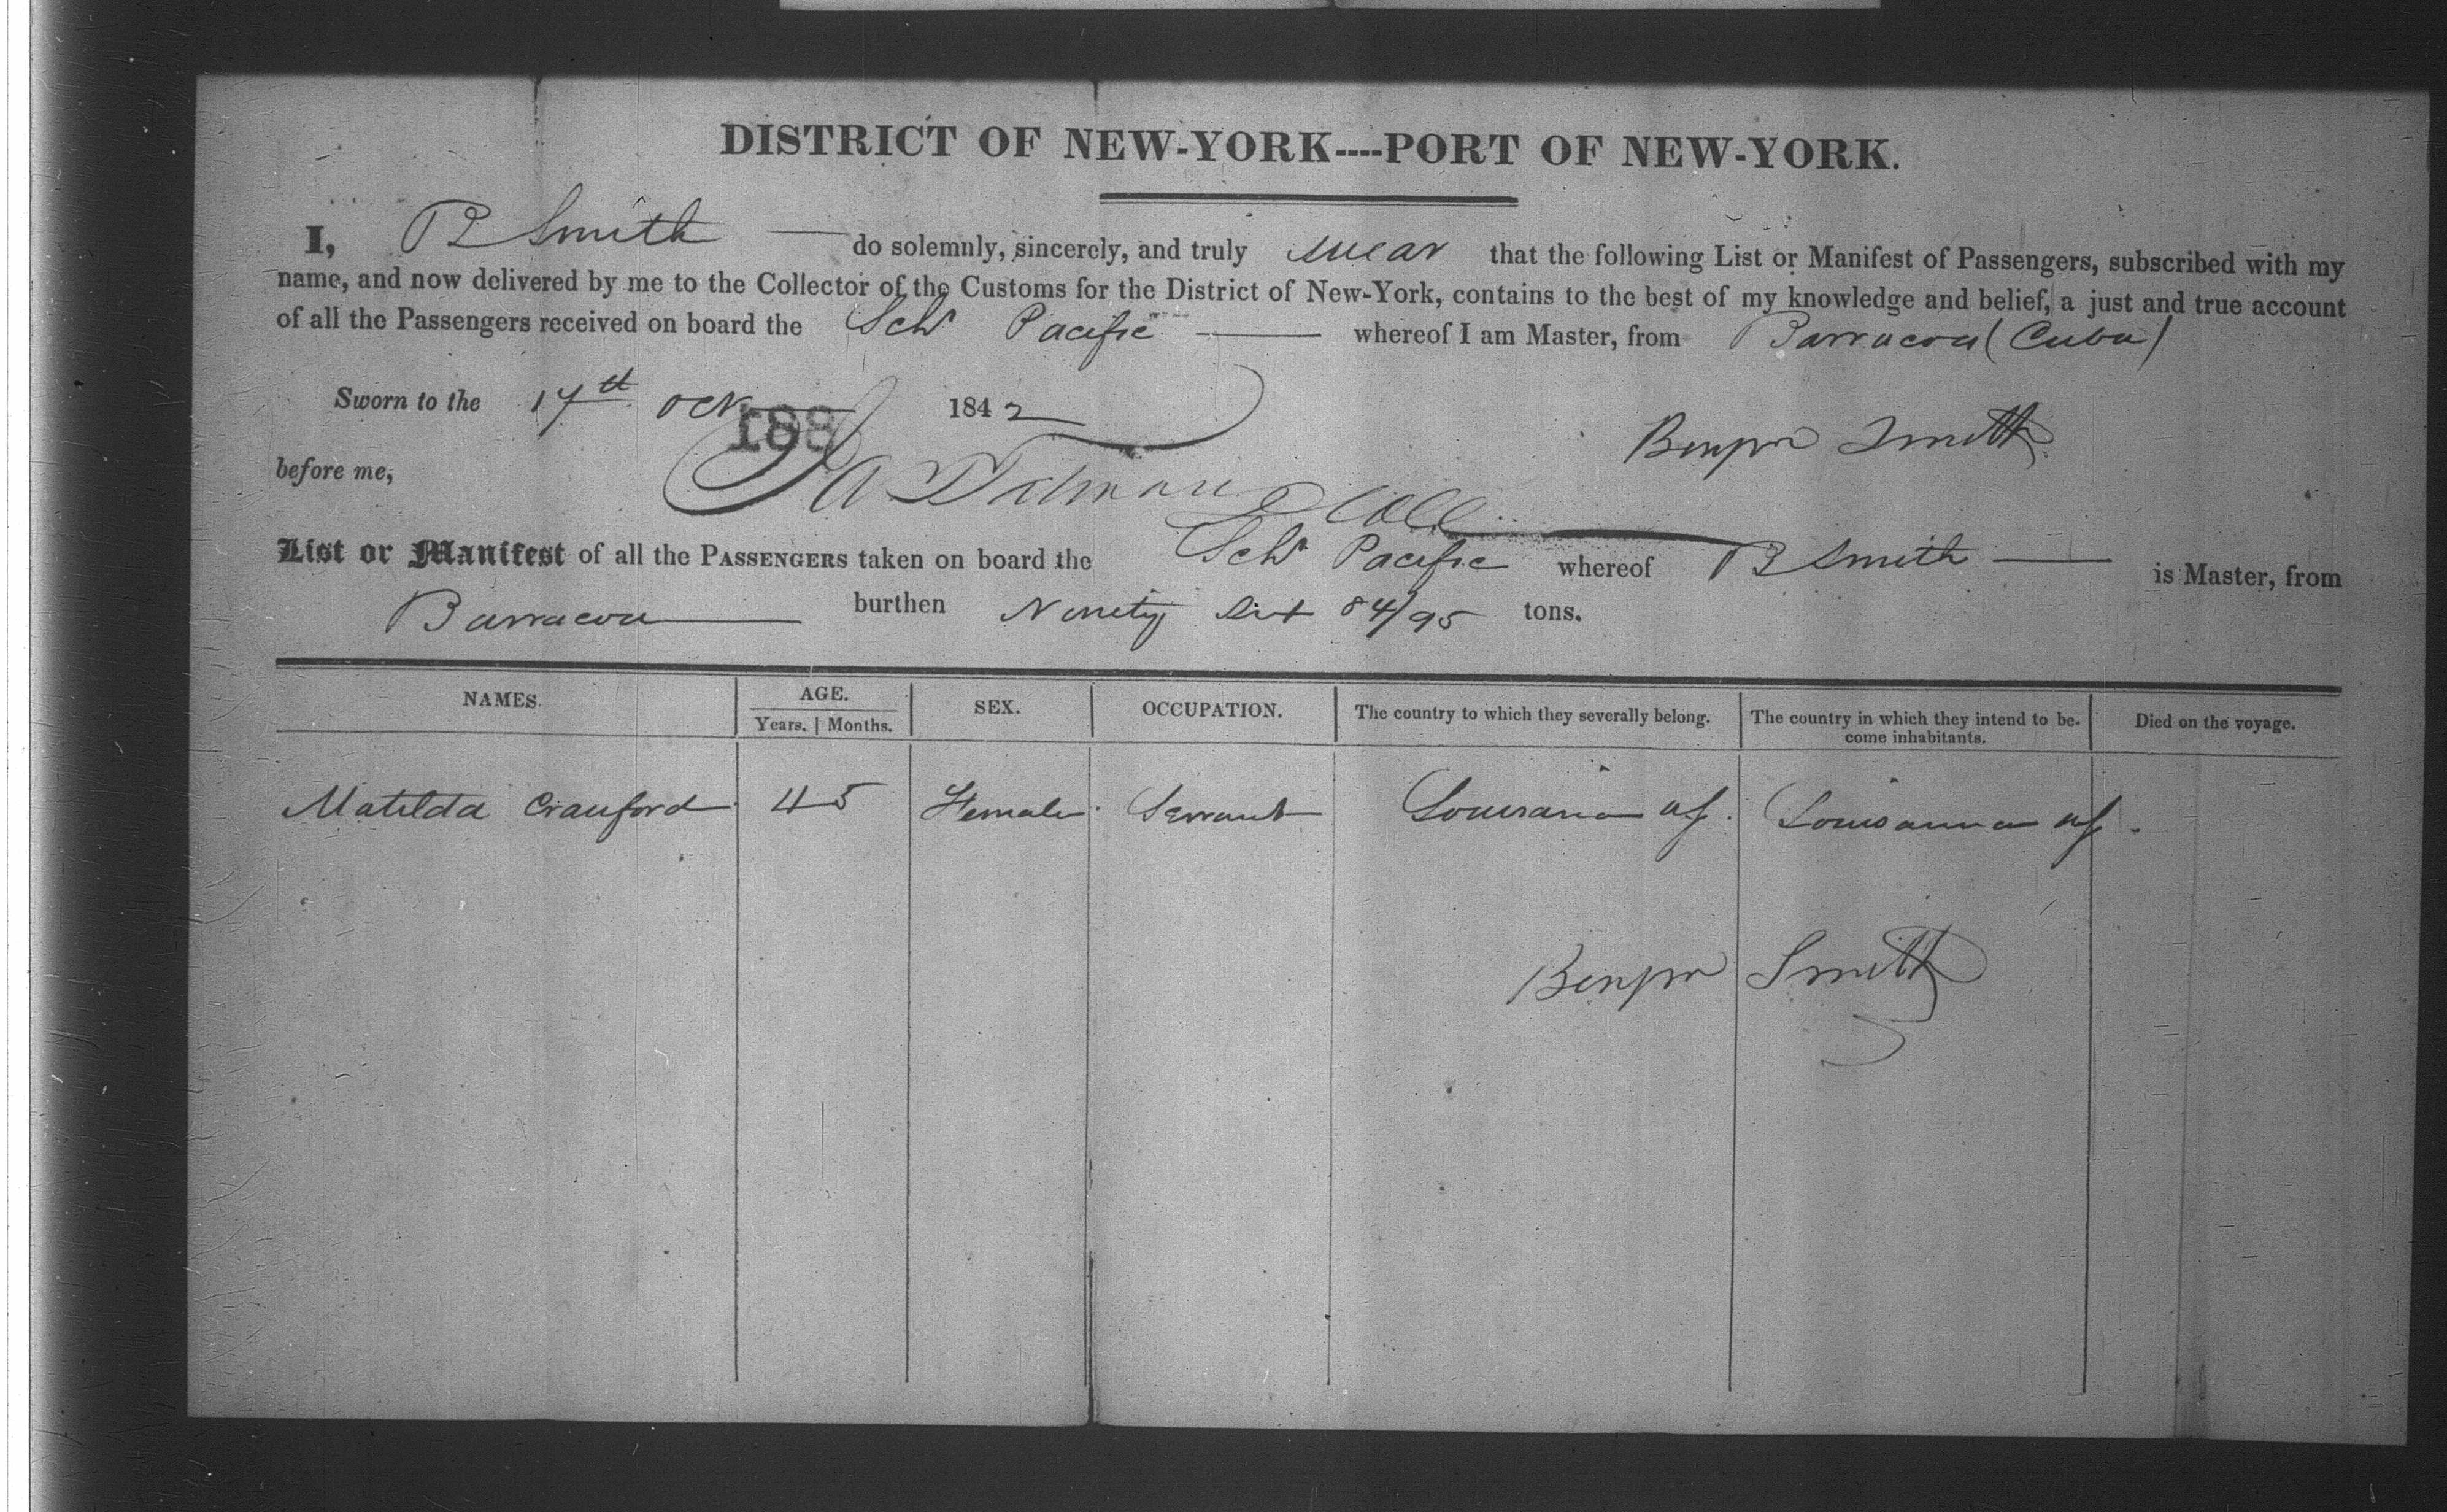 DISTRICT OF NEW-YORK----PORT OF NEW-YORK.
I, B Smith do solemnly, sincerely, and truly swear that the following List or Manifest of Passengers, subscribed with my
name, and now delivered by me to the Collector of the Customs for the District of New-York, contains to the best of my knowledge and belief, a just and true account
of all the Passengers received on board the Schr Pacific whereof I am Master, from Barracoa (Cuba)
Sworn to the 17th Oct 1842
188
Benjn Smith
before me,
Coll
List or Manifest of all the PASSENGERS taken on board the Schr Pacific whereof B Smith is Master, from
Barracoa burthen Ninety Six 84/95 tons.
NAMES. AGE. SEX. OCCUPATION. The country to which they severally belong. The country in which they intend to be- Died on the voyage.
Years. | Months. come inhabitants.
Matilda Crauford 45 Female Servant Louisiana US. Louisanna US.
Benjn Smith